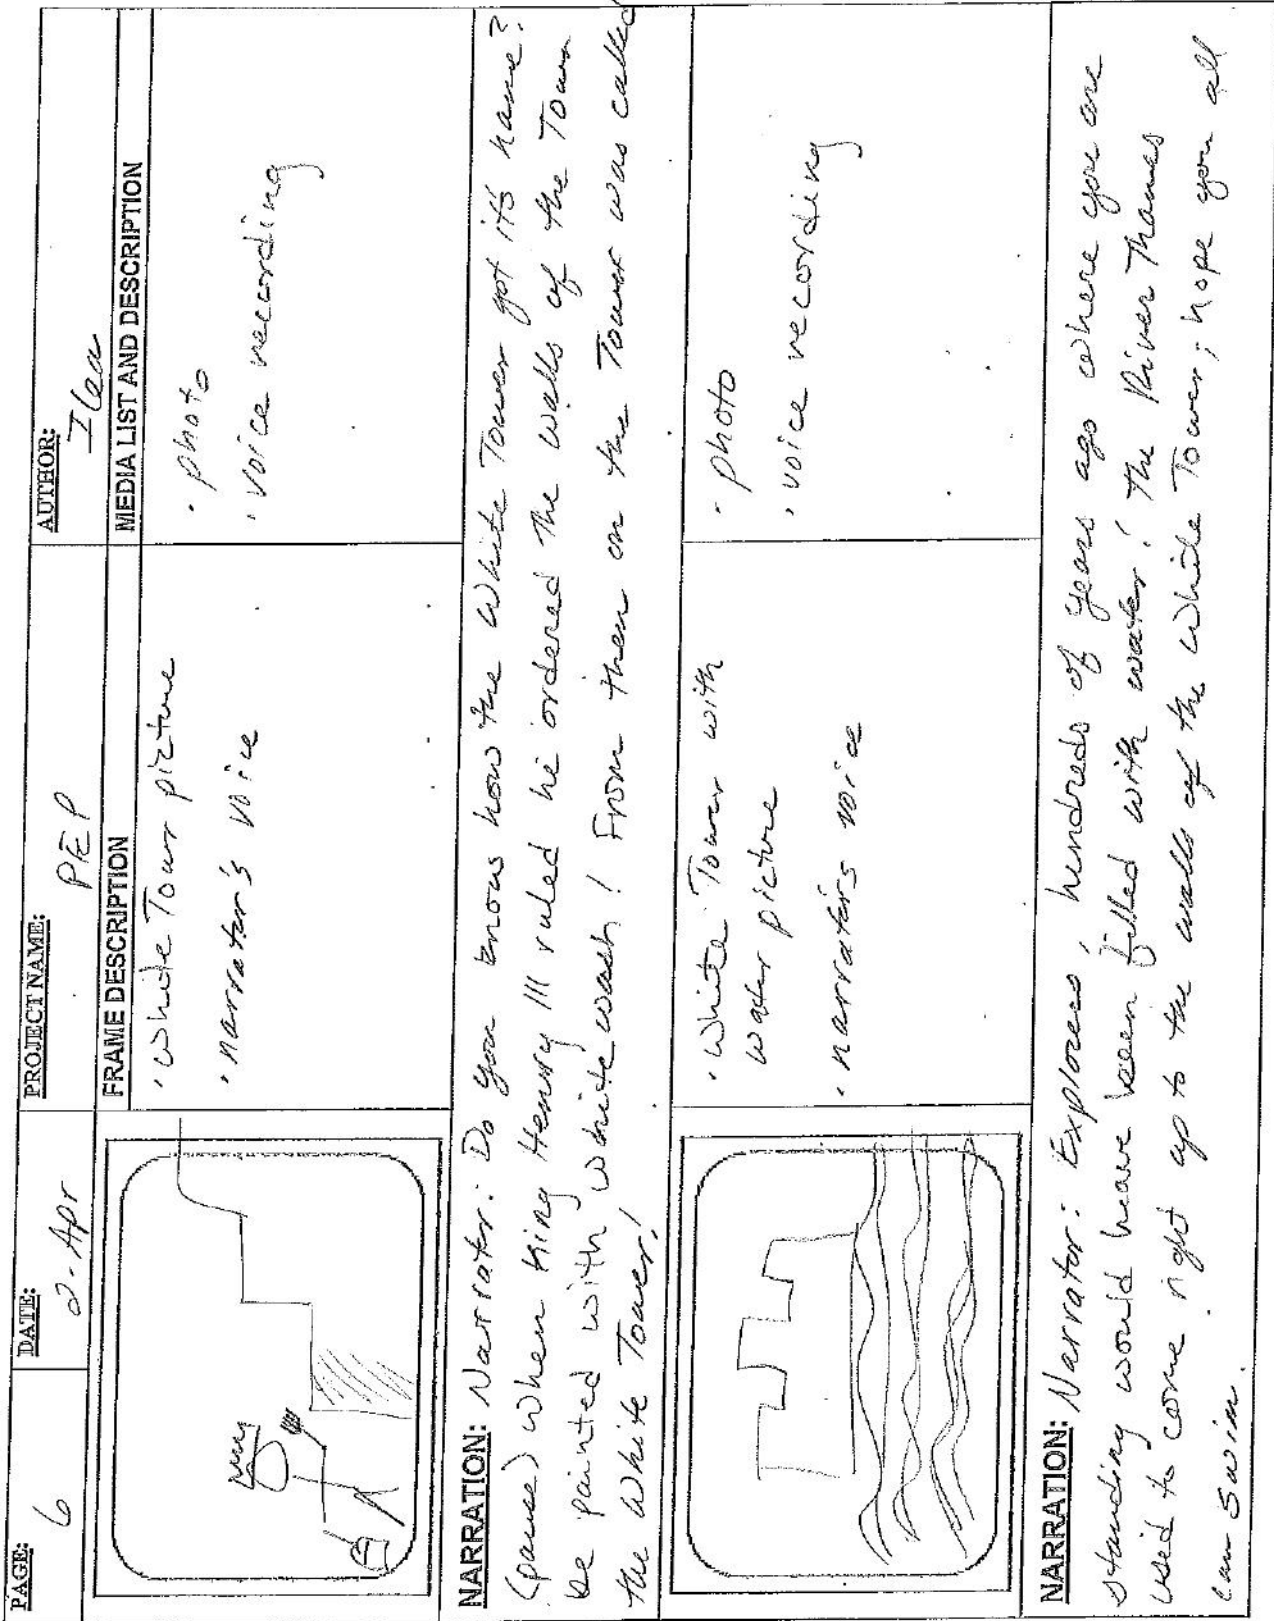 PAGE: 6
DATE: 2-Apr
PROJECT NAME: PEP
AUTHOR: Ilea
FRAME DESCRIPTION
MEDIA LIST AND DESCRIPTION
· White Tour picture
· narrator's voice
· photo
· voice recording
NARRATION: Narrator: Do you know how the White Tower got it's name?
(pause) When King Henry III ruled he ordered the walls of the Tower
be painted with white wash! From then on the Tower was called
the White Tower!
· White Tower with
water picture
· narrators voice
· photo
· voice recording
NARRATION: Narrator: Explorers, hundreds of years ago where you are
standing would have been filled with water! The River Thames
used to come right up to the walls of the White Tower; hope you all
can swim.